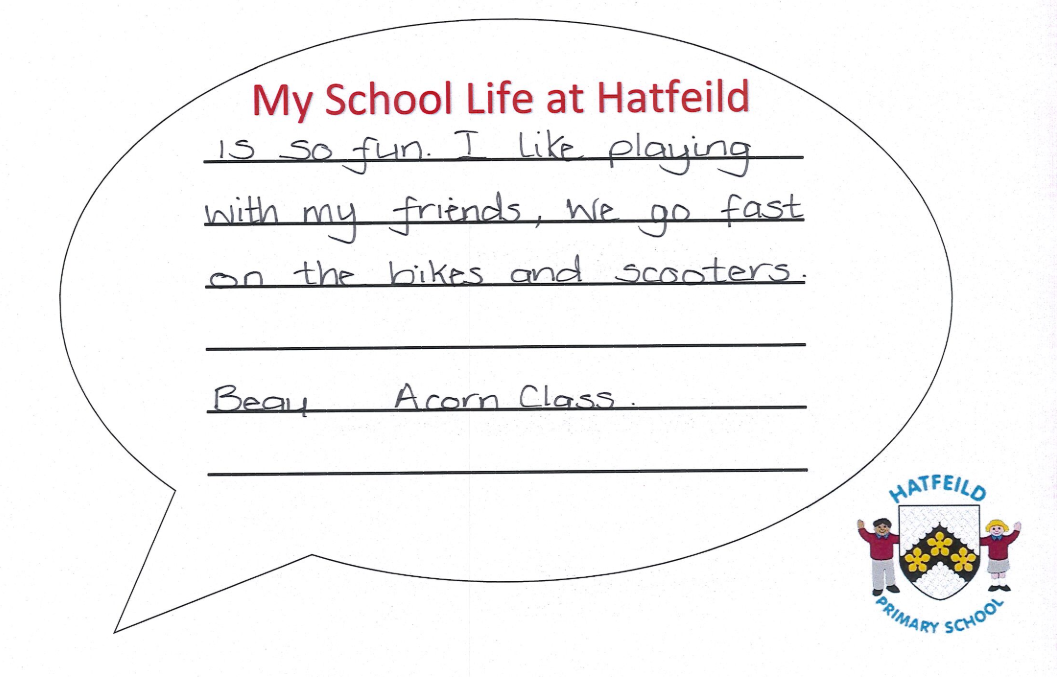 My School Life at Hatfeild
is so fun. I like playing
with my friends, We go fast
on the bikes and scooters.
Beau Acorn Class.
HATFEILD
PRIMARY SCHOOL